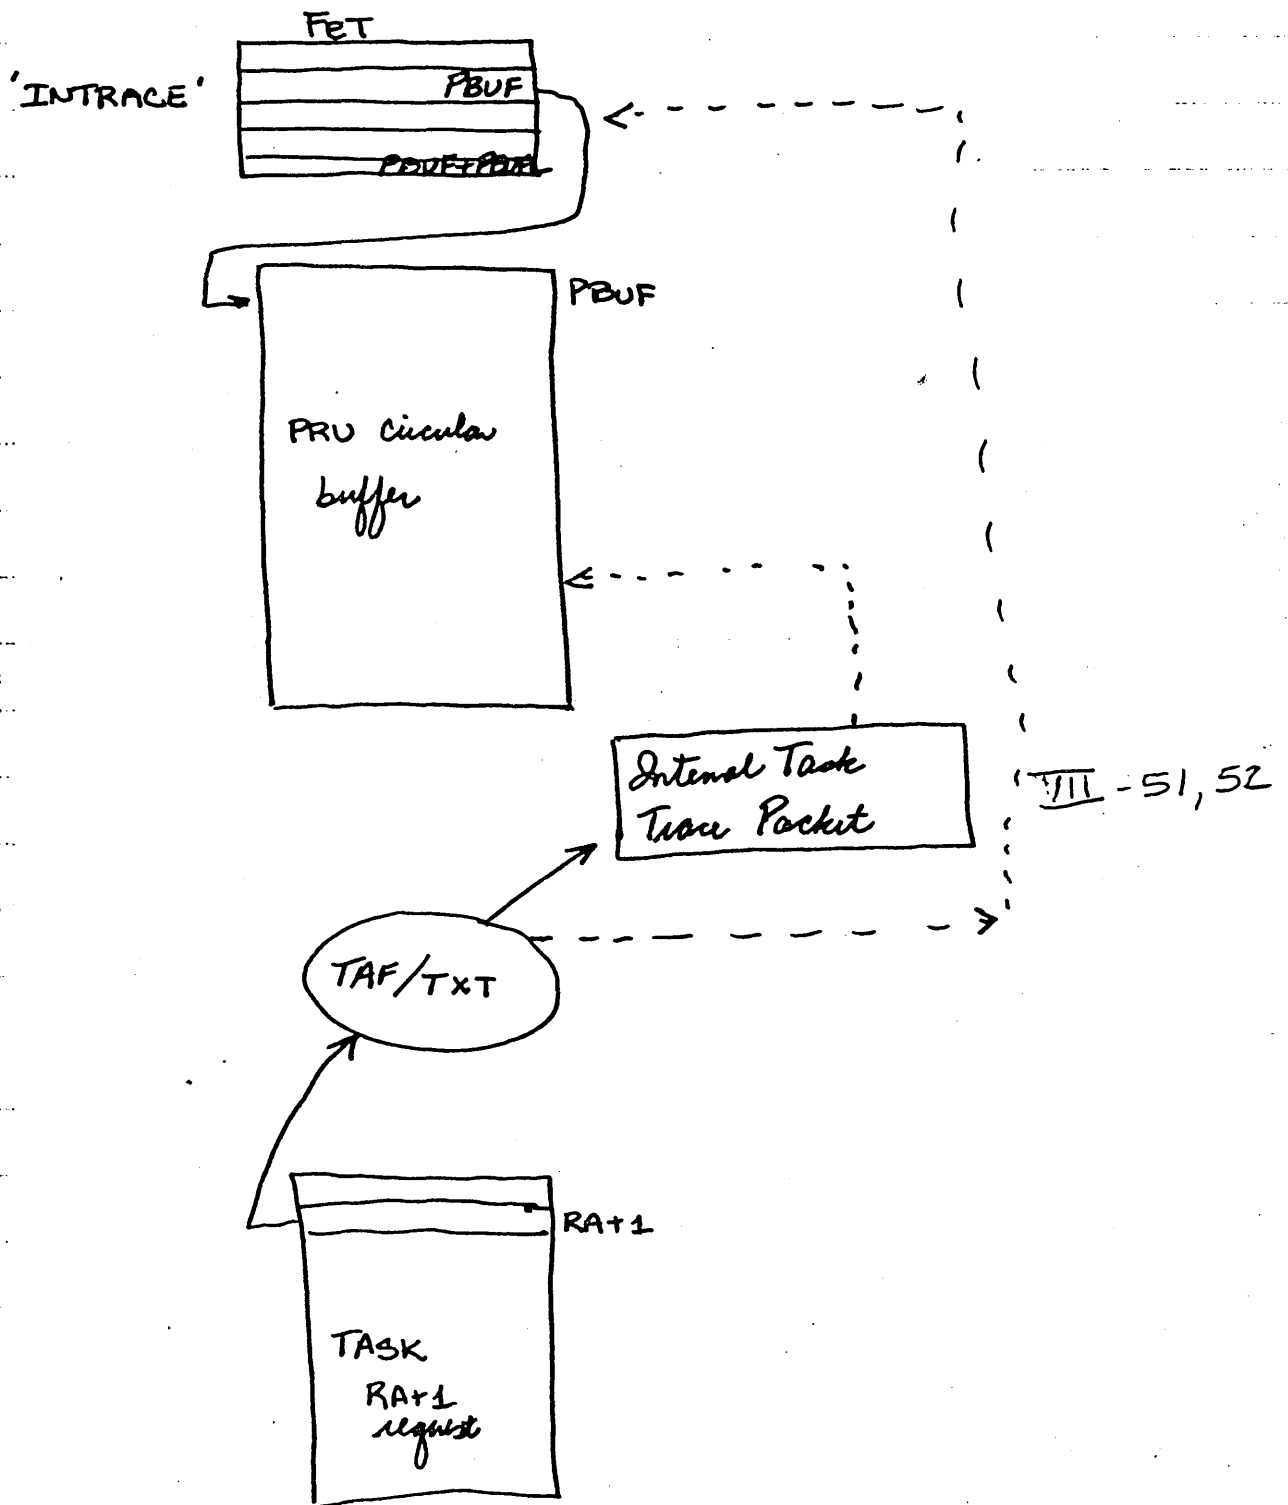 FET
'INTRACE'
PBUF
PBUF
PRU circular
buffer
Internal Task
Trace Packet
VIII - 51, 52
TAF/TXT
RA+1
TASK
RA+1
request